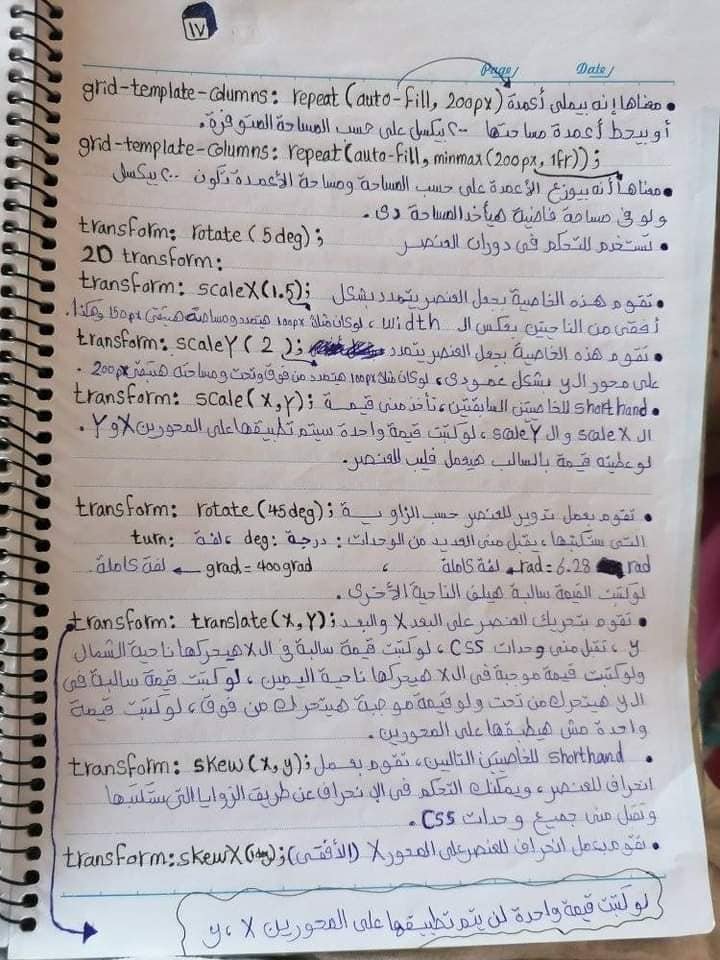 ١٧
Page/ Date/
grid-template-columns: repeat (auto-fill, 200px) • معناها إنه بيملى أعمدة
أو بيحط أعمدة مساحتها ٢٠٠ بيكسل على حسب المساحة المتوفرة.
grid-template-columns: repeat(auto-fill, minmax(200px, 1fr));
• معناها أنه بيوزع الأعمدة على حسب المساحة ومساحة الأعمدة تكون ٢٠٠ بيكسل
ولو فى مساحة فاضية هيأخد المساحة دى.
transform: rotate (5deg); • تستخدم للتحكم فى دوران العنصر
2D transform:
transform: scaleX(1.5); • تقوم هذه الخاصية بجعل العنصر يتمدد بشكل
أفقى من الناحيتين بعكس الـ width، لو كان مثلا 100px هيتمدد ومساحته هتبقى 150px وهكذا.
transform: scaleY(2); • تقوم هذه الخاصية بجعل العنصر يتمدد
على محور الـ y بشكل عمودى، لو كان مثلا 100px هيتمدد من فوق وتحت ومساحته هتبقى 200px.
transform: scale(x,y); • shorthand للخاصيتين السابقتين، تأخذ منى قيمة
الـ scaleX والـ scaleY، لو كتبت قيمة واحدة سيتم تطبيقها على المحورين X و Y.
لو عطيته قيمة بالسالب هيعمل فليب للعنصر.
transform: rotate(45deg); • تقوم بعمل تدوير للعنصر حسب الزاوية
التى ستكتبها، يقبل منى العديد من الوحدات: درجة :deg، لفة :turn
rad = 6.28 rad ← لفة كاملة، grad = 400grad ← لفة كاملة.
لو كتبت القيمة سالبة هيلف الناحية الأخرى.
transform: translate(X,Y); • تقوم بتحريك العنصر على البعد X والبعد
y، تقبل منى وحدات CSS، لو كتبت قيمة سالبة فى الـ x هيحركها ناحية الشمال
ولو كتبت قيمة موجبة فى الـ x هيحركها ناحية اليمين، لو كتبت قيمة سالبة فى
الـ y هيتحرك من تحت ولو قيمة موجبة هيتحرك من فوق، لو كتبت قيمة
واحدة مش هيطبقها على المحورين.
transform: skew(x,y); • shorthand للخاصيتين التاليين، تقوم بعمل
انحراف للعنصر، ويمكنك التحكم فى الإنحراف عن طريق الزوايا التى ستكتبها
وتقبل منى جميع وحدات CSS.
transform: skewX(1deg); • تقوم بعمل انحراف للعنصر على المحور X (الأفقى)
لو كتبت قيمة واحدة لن يتم تطبيقها على المحورين y، X